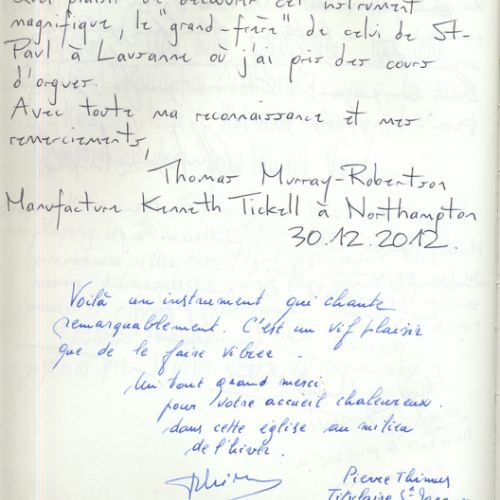 plaisir de découvrir cet instrument
magnifique, le "grand-frère" de celui de St-
Paul à Lausanne où j'ai pris des cours
d'orgues.
Avec toute ma reconnaissance et mes
remerciements,
Thomas Murray-Robertson
Manufacture Kenneth Tickell à Northampton
30.12.2012.
Voilà un instrument qui chante
remarquablement. C'est un vif plaisir
que de le faire vibrer.
Un tout grand merci
pour votre accueil chaleureux
dans cette église au milieu
de l'hiver.
Pierre Thimus
Titulaire St Jacques